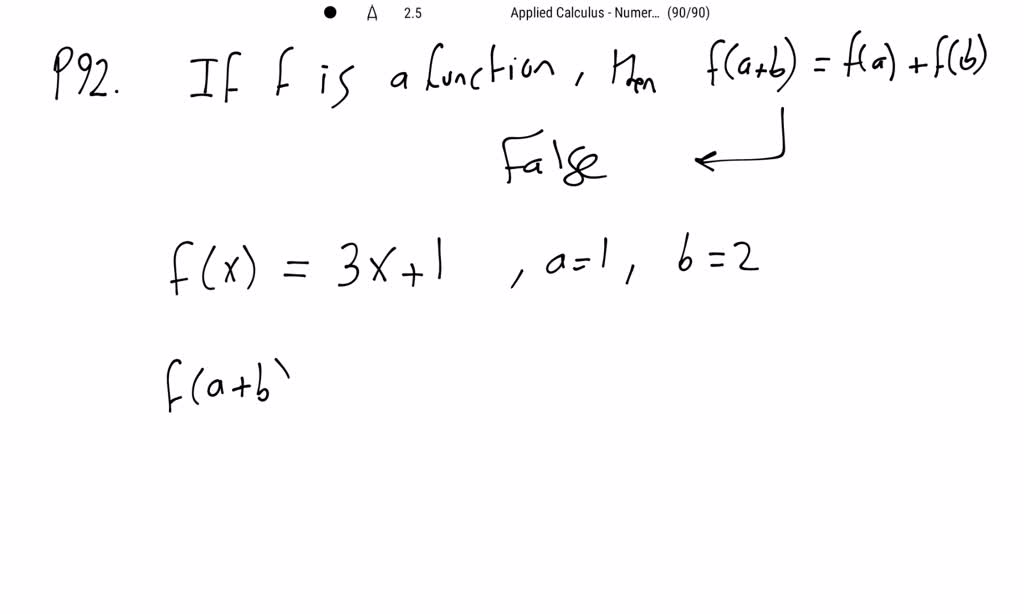 2.5 Applied Calculus - Numer... (90/90)
P92. If f is a function, then f(a+b) = f(a) + f(b)
False
f(x) = 3x+1 , a=1, b=2
f(a+b)